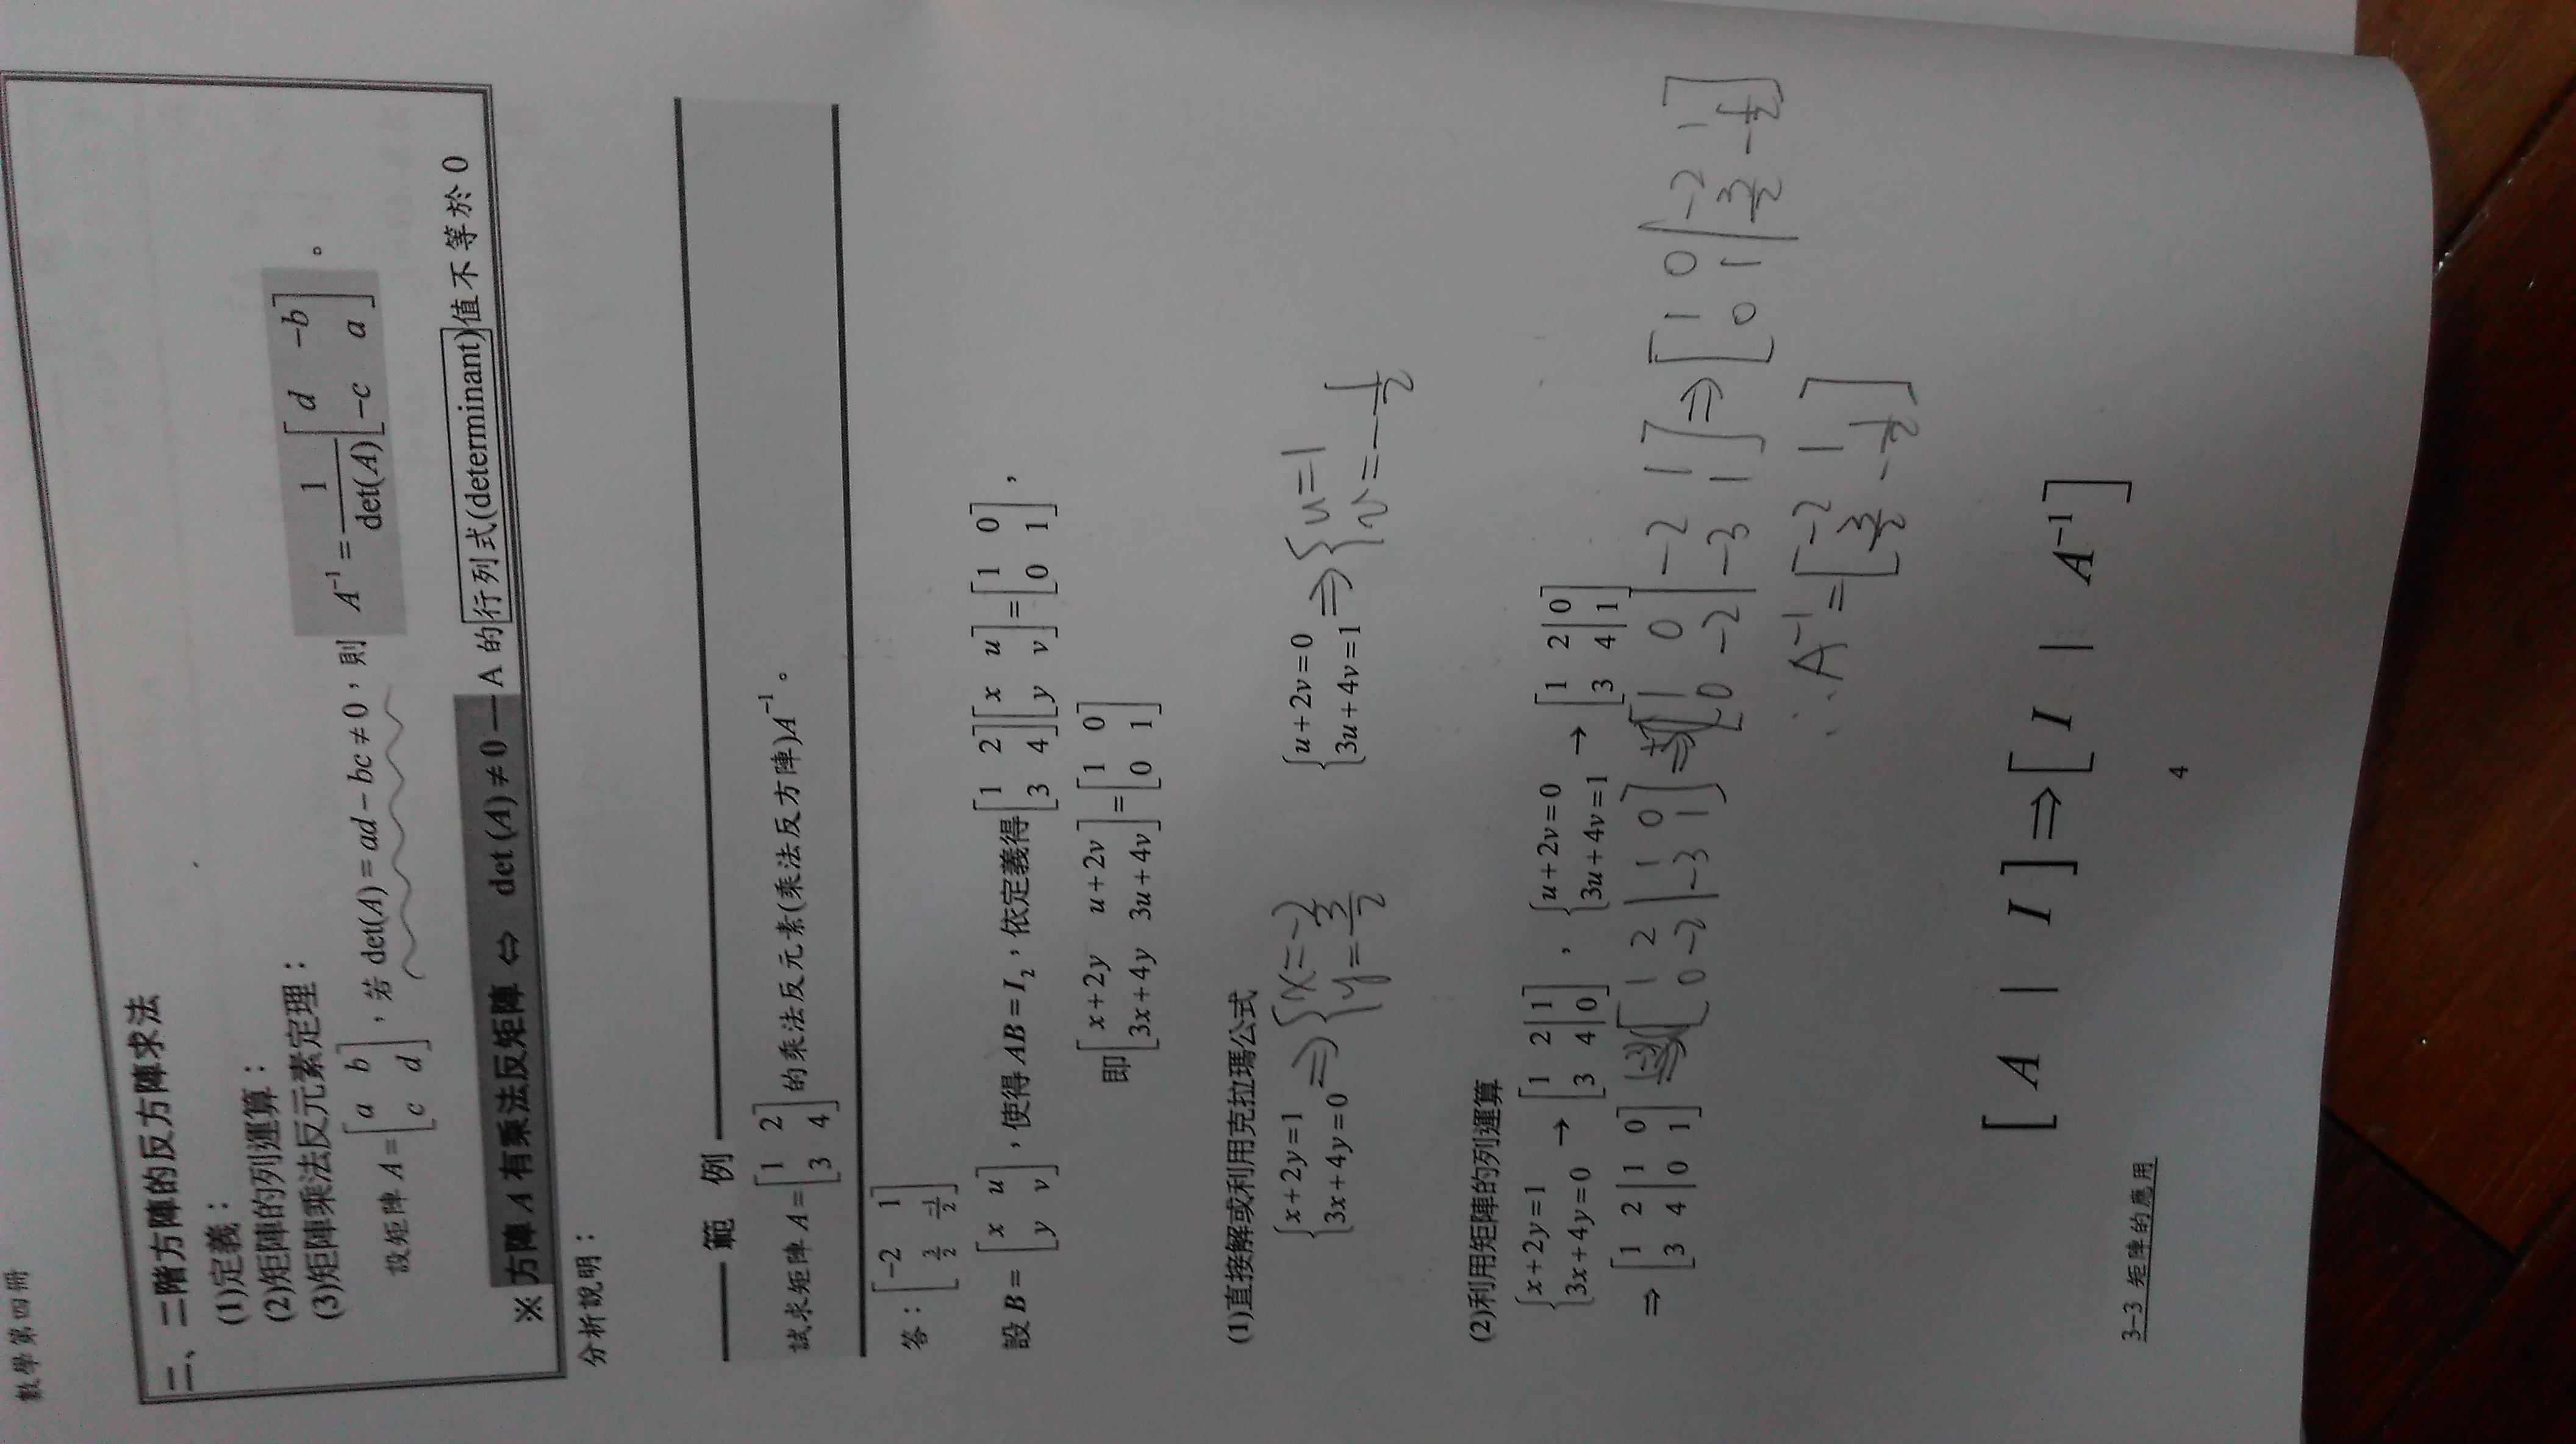 數學第四冊
二、二階方陣的反方陣求法
(1)定義：
(2)矩陣的列運算：
(3)矩陣乘法反元素定理：
設矩陣 A = [a b; c d]，若 det(A) = ad − bc ≠ 0，則 A⁻¹ = 1/det(A) [d −b; −c a]。
※方陣 A 有乘法反矩陣 ⇔ det (A) ≠ 0 — A 的行列式(determinant)值不等於 0
分析說明：
範 例
試求矩陣 A = [1 2; 3 4] 的乘法反元素(乘法反方陣)A⁻¹。
答：[−2 1; 3/2 −1/2]
設 B = [x u; y v]，使得 AB = I₂，依定義得 [1 2; 3 4][x u; y v] = [1 0; 0 1]，
即 [x+2y u+2v; 3x+4y 3u+4v] = [1 0; 0 1]
(1)直接解或利用克拉瑪公式
{x+2y=1; 3x+4y=0 ⇒ {x=−2; y=3/2 {u+2v=0; 3u+4v=1 ⇒ {u=1; v=−1/2
(2)利用矩陣的列運算
{x+2y=1; 3x+4y=0 → [1 2|1; 3 4|0]，{u+2v=0; 3u+4v=1 → [1 2|0; 3 4|1]
⇒ [1 2|1 0; 3 4|0 1] ⇒ [1 2|1 0; 0 −2|−3 1] ⇒ [1 0|−2 1; 0 −2|−3 1] ⇒ [1 0|−2 1; 0 1|3/2 −1/2]
∴ A⁻¹ = [−2 1; 3/2 −1/2]
[A | I] ⇒ [I | A⁻¹]
3−3 矩陣的應用
4